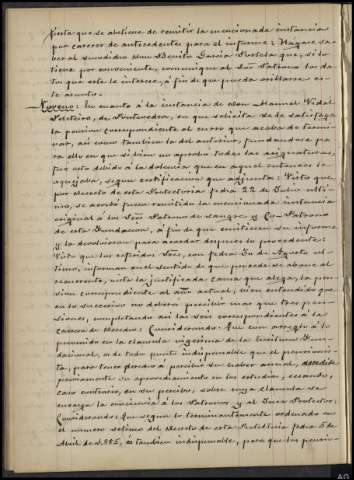 Junta que se abstiene de remitir la mencionada instancia
por carecer de antecedentes para el informe: Hágase sa-
ber al susodicho don Benito García Portela que, si lo
tiene por conveniente, comunique al Sor. Patrono los da-
tos que este le interese, á fin de que pueda emitirse es-
te asunto.
Noveno: En cuanto á la instancia de don Manuel Vidal
Peleteiro, de Pontevedra, en que solicita se le satisfaga
la pension correspondiente al curso que acaba de termi-
nar, asi como tambien la del anterior, fundandose pa-
ra ello en que si bien no aprobó todas las asignaturas,
fué esto debido á la dolencia que en aquel entonces le
aquejaba, segun certificacion que adjunta: Visto que
por decreto de esta Protectoria fecha 22 de Julio últi-
mo, se acordó fuera remitida la mencionada instancia
original á los Sres. Patrono de sangre y Co-Patrono
de esta Fundacion, á fin de que emitiesen su informe
y la devolvieran para acordar despues lo procedente:
Visto que los referidos Sres. con fecha 30 de Agosto úl-
timo, informan en el sentido de que procede se abone al
recurrente, ante la justificada causa que alega, la pen-
sion correspondiente al año actual, bien entendido que
en lo sucesivo no deberá percibir mas que tres pen-
siones, completando asi las seis correspondientes á la
carrera de derecho: Considerando: Que con arreglo á lo
prevenido en la clausula vigesima de la escritura Fun-
dacional, es de todo punto indispensable que el pensionis-
ta, para tener derecho á percibir su haber anual, acredite
previamente su aprovechamiento en los estudios, cesando,
caso contrario, en su percibo, sobre cuya clausula se
encarga la conciencia á los Patronos y al Juez Protector:
Considerando: Que segun lo terminantemente ordenado en
el numero septimo del decreto de esta Protectoria fecha 5 de
Abril de 1.885, es tambien indispensable, para que los pensio-